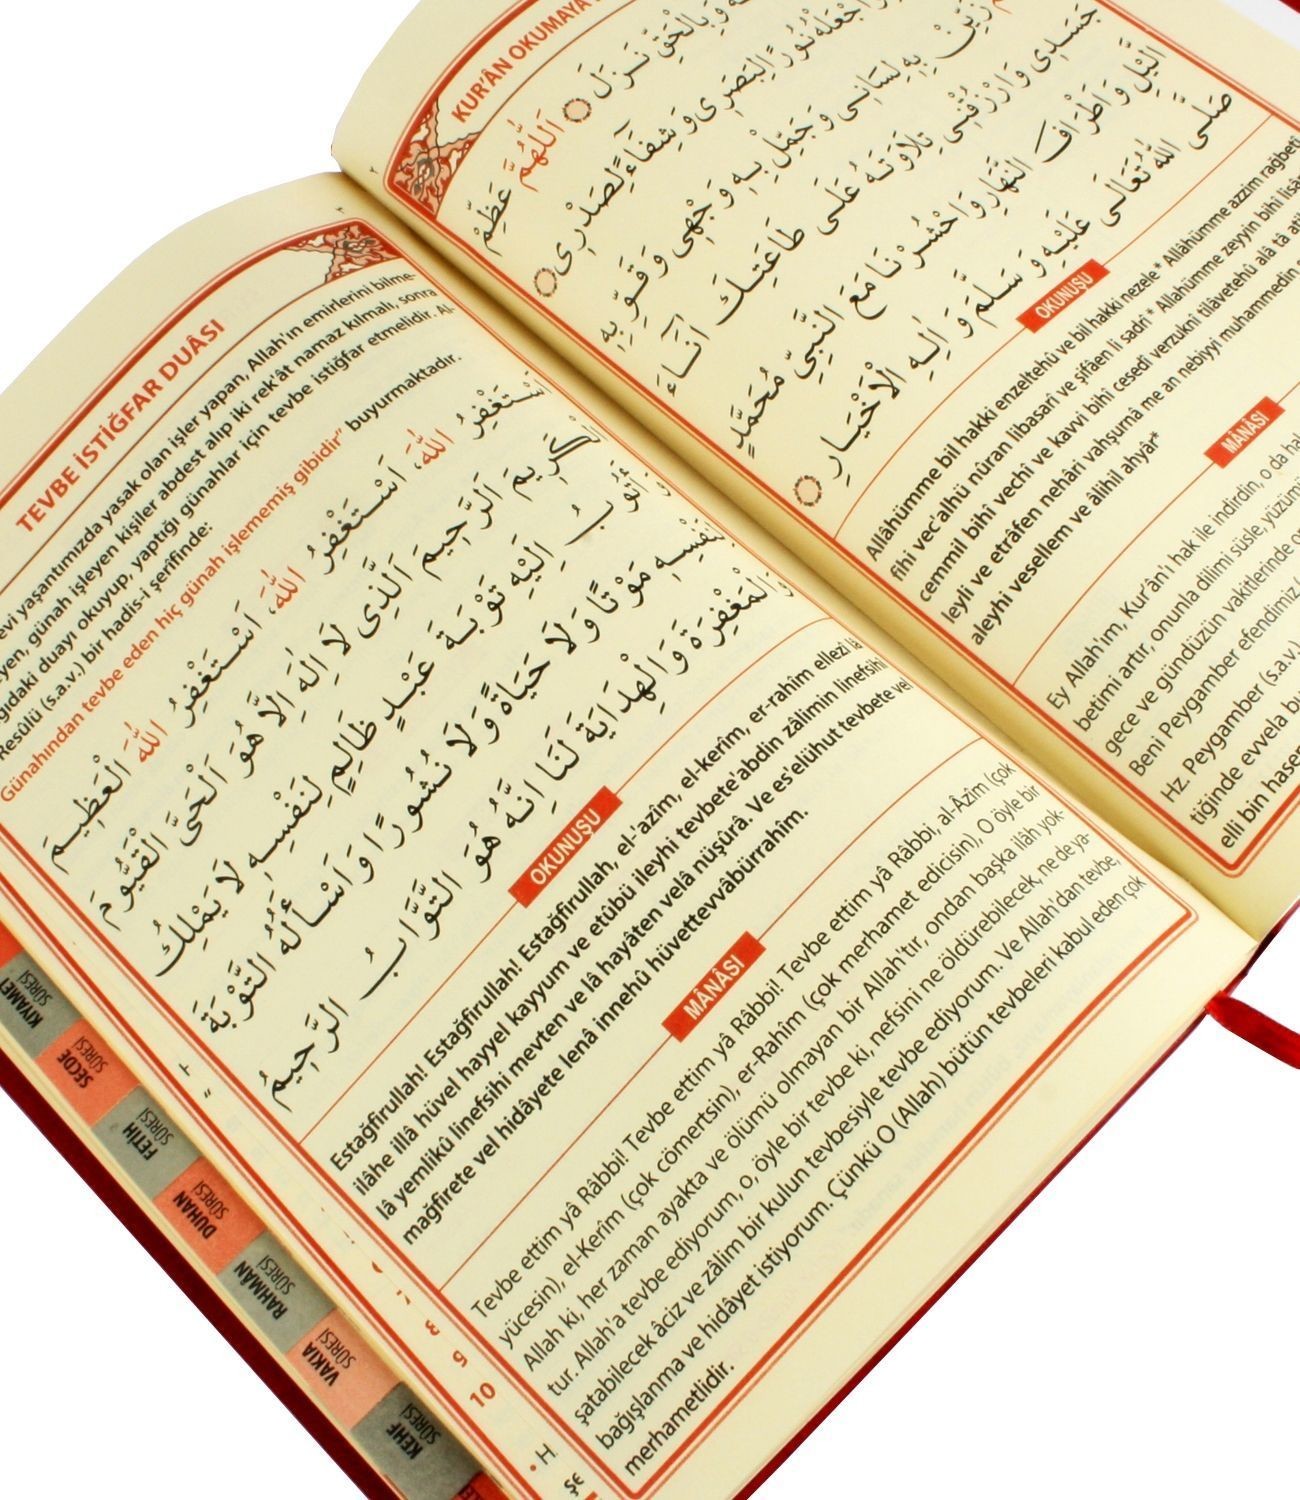 TEVBE İSTİĞFAR DUÂSI
yaşantımızda yasak olan işler yapan, Allah'ın emirlerini bilme-
günah işleyen kişiler abdest alıp iki rek'ât namaz kılmalı, sonra
duayı okuyup, yaptığı günahlar için tevbe istiğfar etmelidir. Al-
Resûlü (s.a.v.) bir hadis-i şerifinde:
Günahından tevbe eden hiç günah işlememiş gibidir" buyurmaktadır.
اَسْتَغْفِرُ اللهَ، اَسْتَغْفِرُ اللهَ، اَسْتَغْفِرُ اللهَ الْعَظِيمَ
الْكَرِيمَ اَلرَّحِيمَ اَلَّذِى لَا اِلٰهَ اِلَّا هُوَ اَلْحَىَّ الْقَيُّومَ
اِلَيْهِ تَوْبَةَ عَبْدٍ ظَالِمٍ لِنَفْسِهِ لَا يَمْلِكُ
لِنَفْسِهِ مَوْتًا وَلَا حَيَاةً وَلَا نُشُورًا وَاَسْأَلُهُ التَّوْبَةَ
وَالْمَغْفِرَةَ وَالْهِدَايَةَ لَنَا اِنَّهُ هُوَ التَّوَّابُ الرَّحِيمُ
OKUNUŞU
Estağfirullah! Estağfirullah! Estağfirullah, el-'azîm, el-kerîm, er-rahîm ellezî lâ
ilâhe illâ hüvel hayyel kayyum ve etûbü ileyhi tevbete'abdin zâlimin linefsihî
lâ yemlikû linefsihi mevten ve lâ hayâten velâ nüşûrâ. Ve es'elühut tevbete vel
mağfirete vel hidâyete lenâ innehû hüvettevvâbürrahîm.
MÂNÂSI
Tevbe ettim yâ Râbbi! Tevbe ettim yâ Râbbi! Tevbe ettim yâ Râbbi, al-Âzîm (çok
yücesin), el-Kerîm (çok cömertsin), er-Rahîm (çok merhamet edicisin), O öyle bir
Allah ki, her zaman ayakta ve ölümü olmayan bir Allah'tır, ondan başka ilâh yok-
tur. Allah'a tevbe ediyorum, o, öyle bir tevbe ki, nefsini ne öldürebilecek, ne de ya-
şatabilecek âciz ve zâlim bir kulun tevbesiyle tevbe ediyorum. Ve Allah'dan tevbe,
bağışlanma ve hidâyet istiyorum. Çünkü O (Allah) bütün tevbeleri kabul eden çok
merhametlidir.
KUR'ÂN OKUMAYA
وَبِالْحَقِّ نَزَلَ اَللّٰهُمَّ عَظِّمْ
وَاجْعَلْهُ نُورًا لِبَصَرِى وَشِفَاءً لِصَدْرِى
زَيِّنْ بِهِ لِسَانِى وَجَمِّلْ بِهِ وَجْهِى وَقَوِّ بِهِ
جَسَدِى وَارْزُقْنِى تِلَاوَتَهُ عَلَى طَاعَتِكَ اٰنَاءَ
اللَّيْلِ وَاَطْرَافَ النَّهَارِ وَاحْشُرْنَا مَعَ النَّبِىِّ مُحَمَّدٍ
صَلَّى اللهُ تَعَالَى عَلَيْهِ وَسَلَّمَ وَاٰلِهِ الْاَخْيَارِ
OKUNUŞU
Allâhümme bil hakki enzeltehû ve bil hakki nezele* Allâhümme azzim rağbetî
fîhi vec'alhü nûran libasarî ve şifâen li sadrî* Allahümme zeyyin bihî lisânî
cemmil bihî vechî ve kavvi bihî cesedî verzuknî tilâvetehû alâ tâ
leyli ve etrâfen nehâri vahşurnâ me an nebiyyi muhammedin
aleyhi vesellem ve âlihil ahyâr*
MÂNÂSI
Ey Allah'ım, Kur'ân'ı hak ile indirdin, o da
betimi artır, onunla dilimi süsle, yüzümü
gece ve gündüzün vakitlerinde
Beni Peygamber efendimiz
Hz. Peygamber (s.a.v.)
tiğinde evvela
elli bin
KIYAMET SÛRESİ
SECDE SÛRESİ
FETİH SÛRESİ
DUHAN SÛRESİ
RAHMÂN SÛRESİ
VAKIA SÛRESİ
KEHF SÛRESİ
9
10